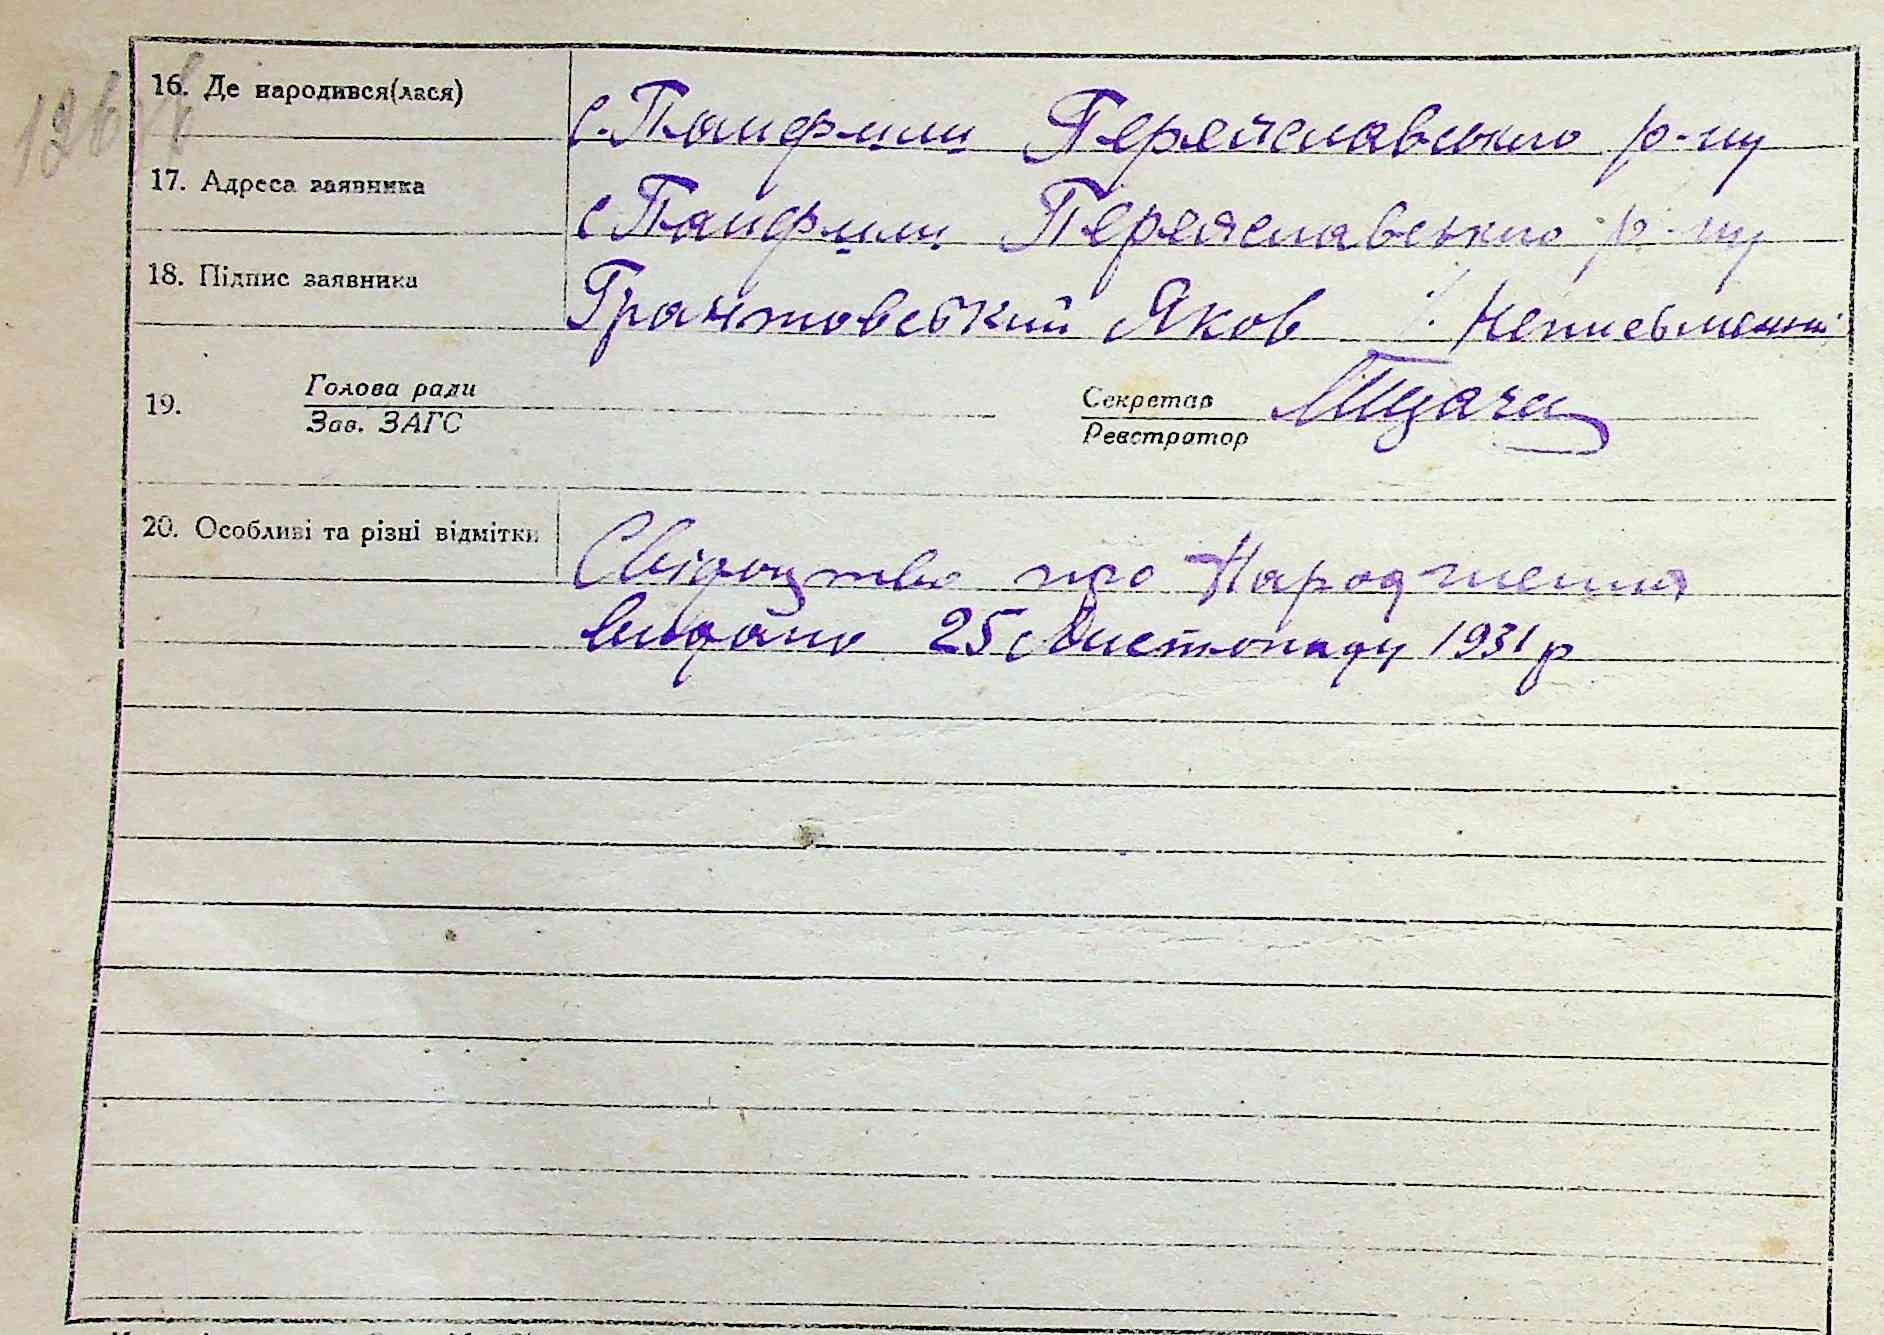 16. Де народився(лася) с. Панфили Переяславського р-ну
17. Адреса заявника с Панфили Переяславського р-ну
18. Підпис заявника Грантовський Яков Неписьменний
19. Голова ради Секретар
Зав. ЗАГС Реєстратор
20. Особливі та різні відмітки Свідоцтво про Народження
видано 25 Листопаду 1931 р